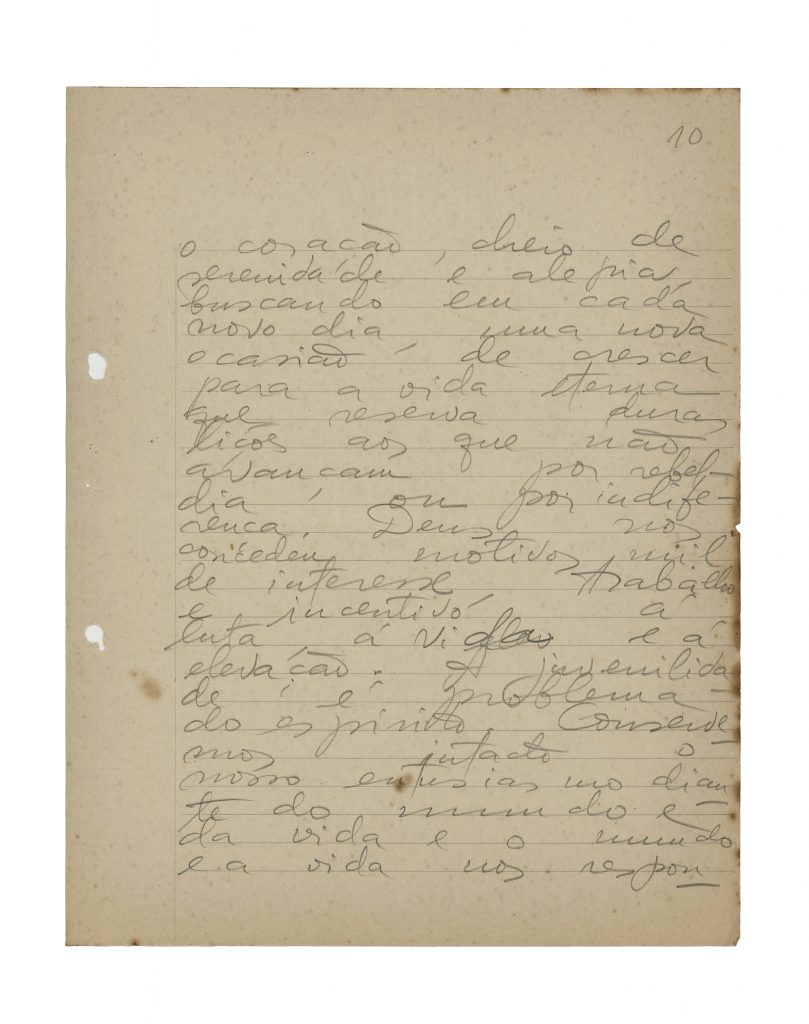 10
o coração, cheio de
serenidade e alegria,
buscando em cada
novo dia uma nova
ocasião de crescer
para a vida eterna
que reserva duras
lições aos que não
avancam por rebel-
dia ou por indife-
renca. Deus nos
concedeu motivos mil
de interesse trabalho
e incentivo á
luta á vida e á
elevação. A juvenilida
de é problema
do espirito. Conserve
mos intacto o
nosso entusiasmo dian
te do mundo e
da vida e o mundo
e a vida nos respon